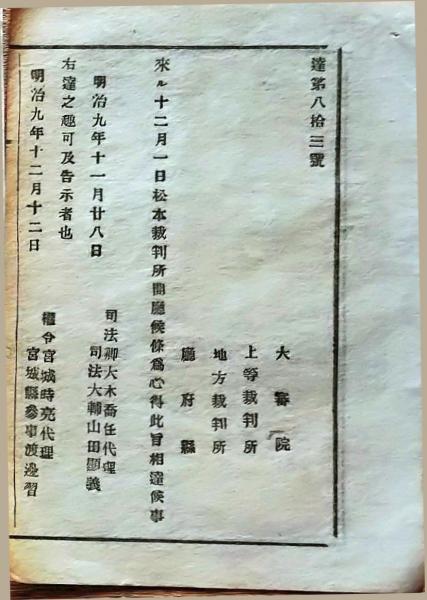 達第八拾三號
大審院
上等裁判所
地方裁判所
廳府縣
來ル十二月一日松本裁判所開廳候條爲心得此旨相達候事
明治九年十一月廿八日
司法卿大木喬任代理
司法大輔山田顯義
右達之趣可及告示者也
明治九年十二月十二日
權令宮城時亮代理
宮城縣參事渡邊習